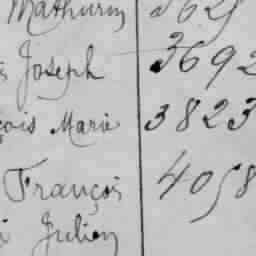 Mathurin
Joseph 3692
çois Marie 3823
François 4058
Julien